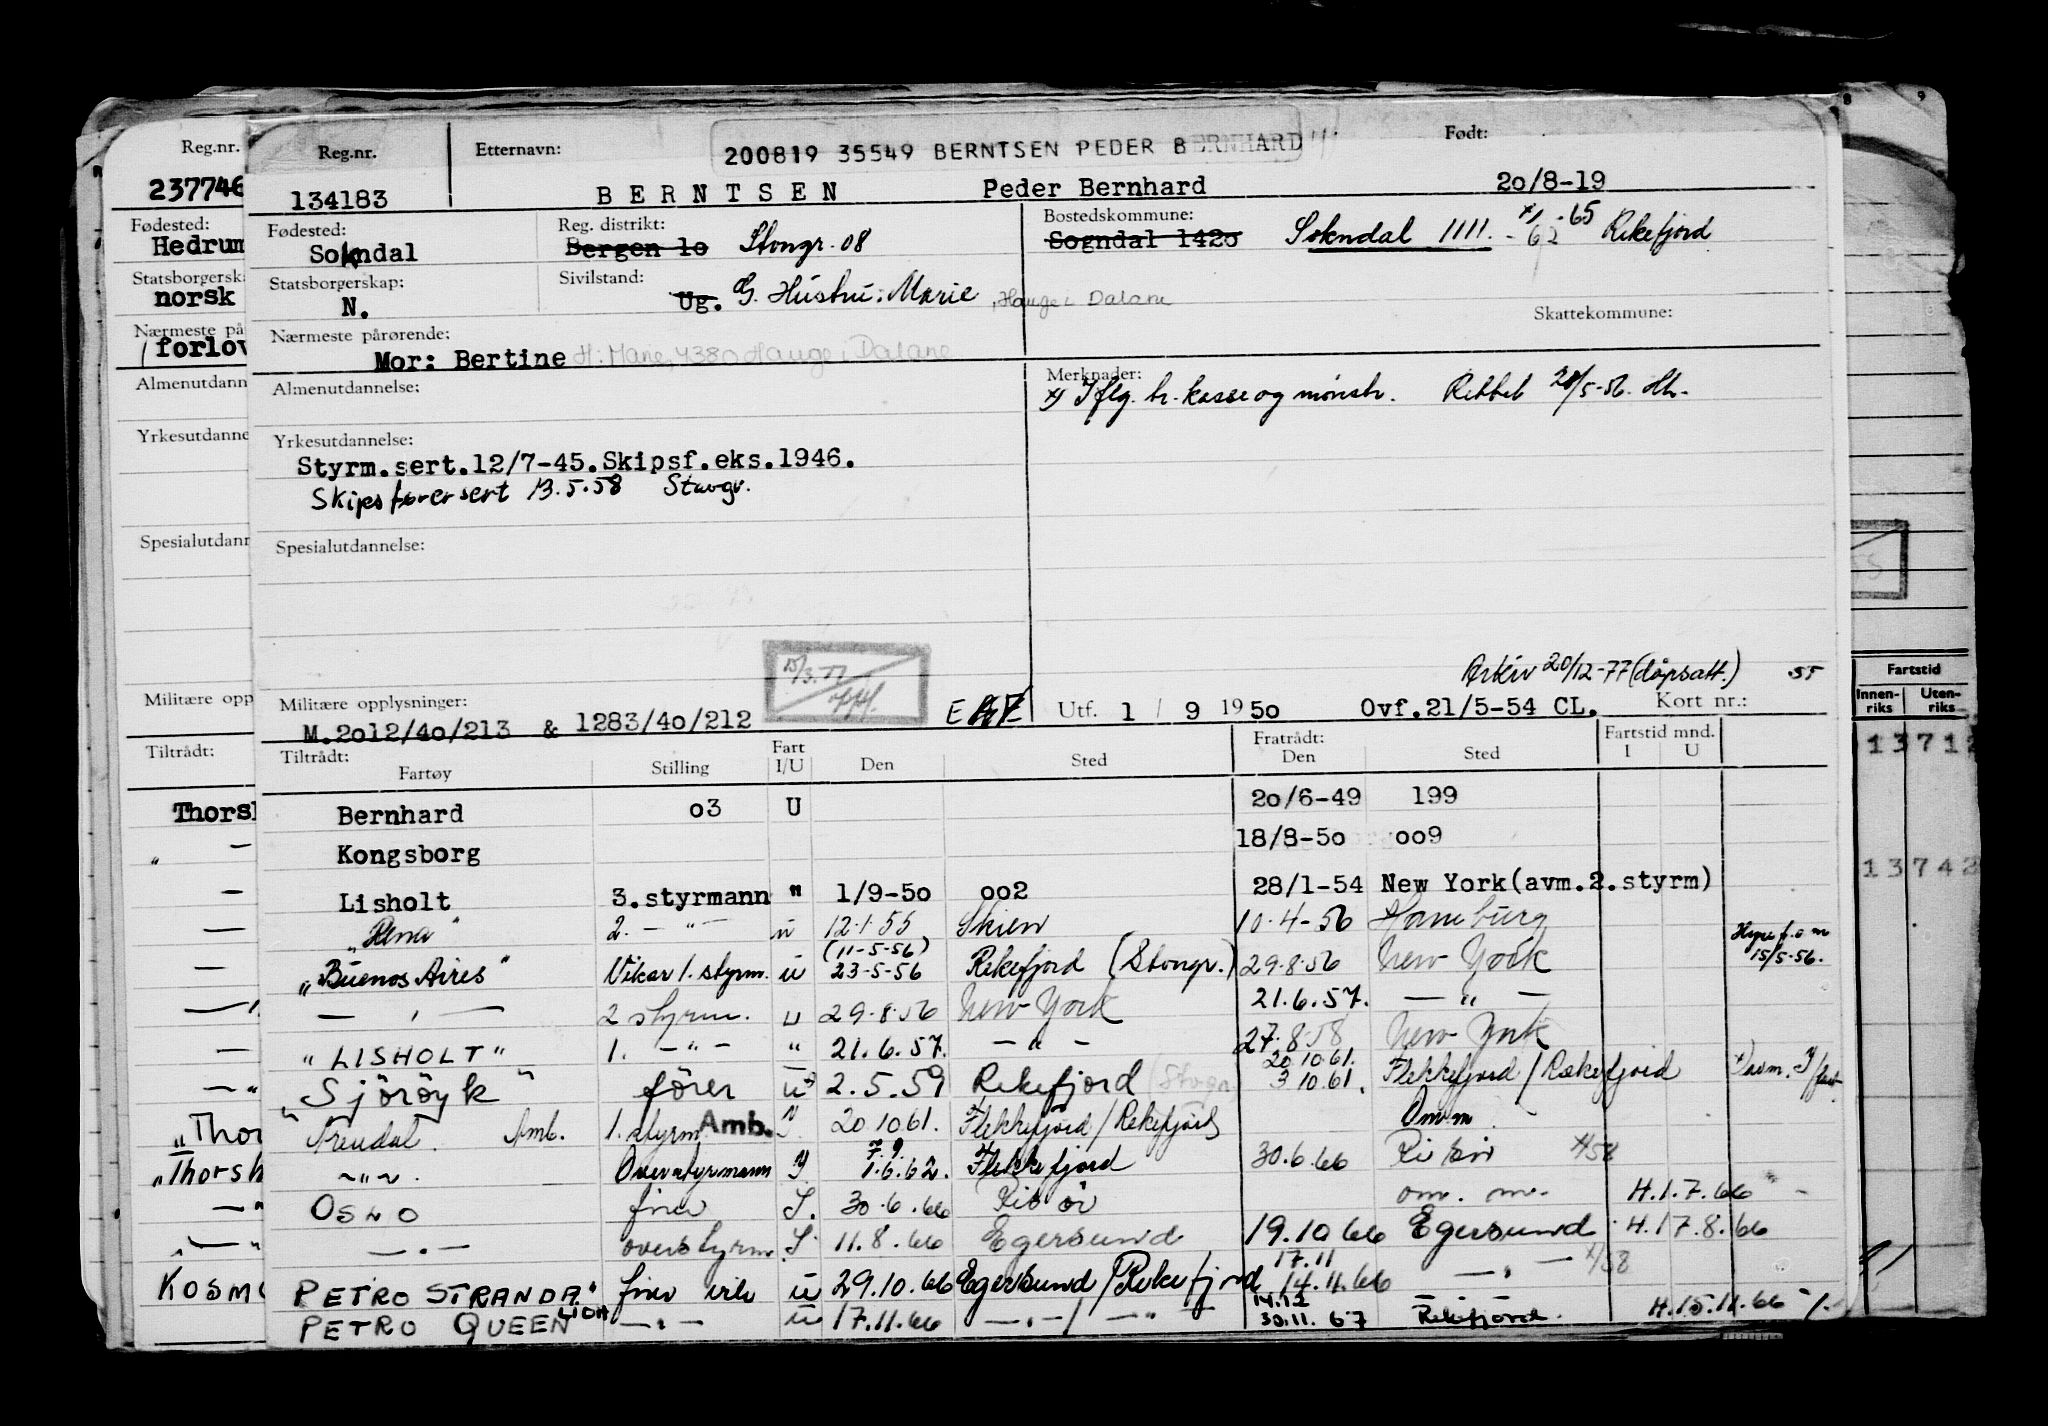 Reg.nr.
237746
Fødested:
Hedrum
Statsborgerska
norsk
Nærmeste på
forlov
Almenutdann
Yrkesutdanne
Spesialutdann
Militære opp
Tiltrådt:
Thorsh
"Thor
"Thorsh
KOSMO
Reg.nr. Etternavn: 200819 35549 BERNTSEN PEDER BERNHARD Født:
134183 BERNTSEN Peder Bernhard 20/8-19
Fødested: Reg. distrikt: Bostedskommune:
Sokndal Bergen 10 Stvngr. 08 Sogndal 1420 Sokndal 1111. Rekefjord
Statsborgerskap: Sivilstand:
N. Ug. G. Hustru: Marie, Hauge i Dalane
Skattekommune:
Nærmeste pårørende:
Mor: Bertine H: Marie, 4380 Hauge i Dalane
Almenutdannelse: Merknader:
x) Iflg. hr. kasse og mønstr. Rettet 28/5-56. Hh.
Yrkesutdannelse:
Styrm.sert.12/7-45.Skipsf.eks.1946.
Skipsførersert 13.5.58 Stavgr.
Spesialutdannelse:
15/3.77
Arkiv 20/12-77 (døpsatt.) 55
Militære opplysninger: Utf. 1 / 9 1950 Ovf.21/5-54 CL. Kort nr.:
M.2012/40/213 & 1283/40/212
Tiltrådt: Fart Fratrådt: Fartstid mnd.
Fartøy Stilling I/U Den Sted Den Sted I U
Bernhard 03 U 20/6-49 199
Kongsborg 18/8-50 009
Lisholt 3.styrmann " 1/9-50 002 28/1-54 New York(avm.2.styrm)
"Rena" 2. - " - u 12.1.55 Skien 10.4-56 Hamburg
"Buenos Aires" Vikar 1. styrm. u (11-5-56) 23-5-56 Rekefjord (Stvngr.) 29.8.56 New York Hyre f.o m 15/5-56.
— " — 2 styrm. u 29.8.56 New York 21.6.57. — " —
"LISHOLT" 1. - " - " 21.6.57. — " — 27.8.58 New York
"Sjöröyk" fører u 2.5.59 Rekefjord (Stvgr. 20.10.61. 3 10.61. Flekkefjord / Rekefjord
Amb. 1. styrm. Amb. 20 10 61. Flekkefjord / Rekefjord Omm
— " — Overstyrmann 7.9. 1.6.62. Flekkefjord 30.6.66 Risør
OSLO fører S. 30.6.66 Risør om. m. H.1.7.66
— " — overstyrm. S. 11.8.66 Egersund 19.10 66 Egersund H.17.8.66
PETRO STRANDA" fører u 29.10.66 Egersund / Rekefjord 17.11 14.11.66 — " —
PETRO QUEEN LION — " — u 17.11.66 — " — / — " — 14.12 30.11.67 Rekefjord. H.15.11.66
Fartstid
Innen-riks Uten-riks
13712
13742